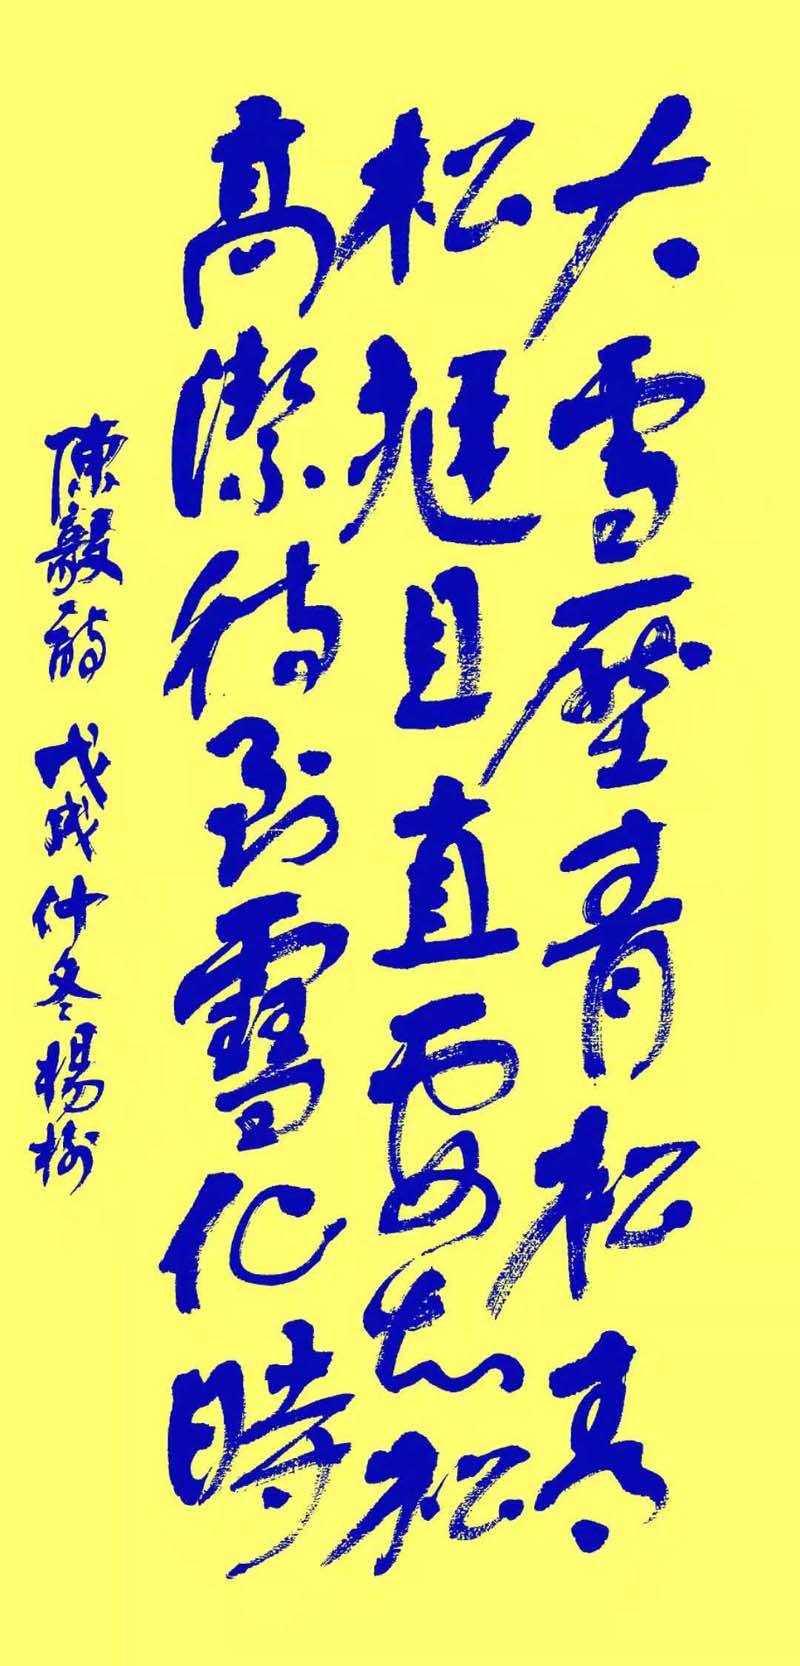 大雪壓青松青
松挺且直要知松
高潔待到雪化時
陳毅詩 戊戌仲冬楊